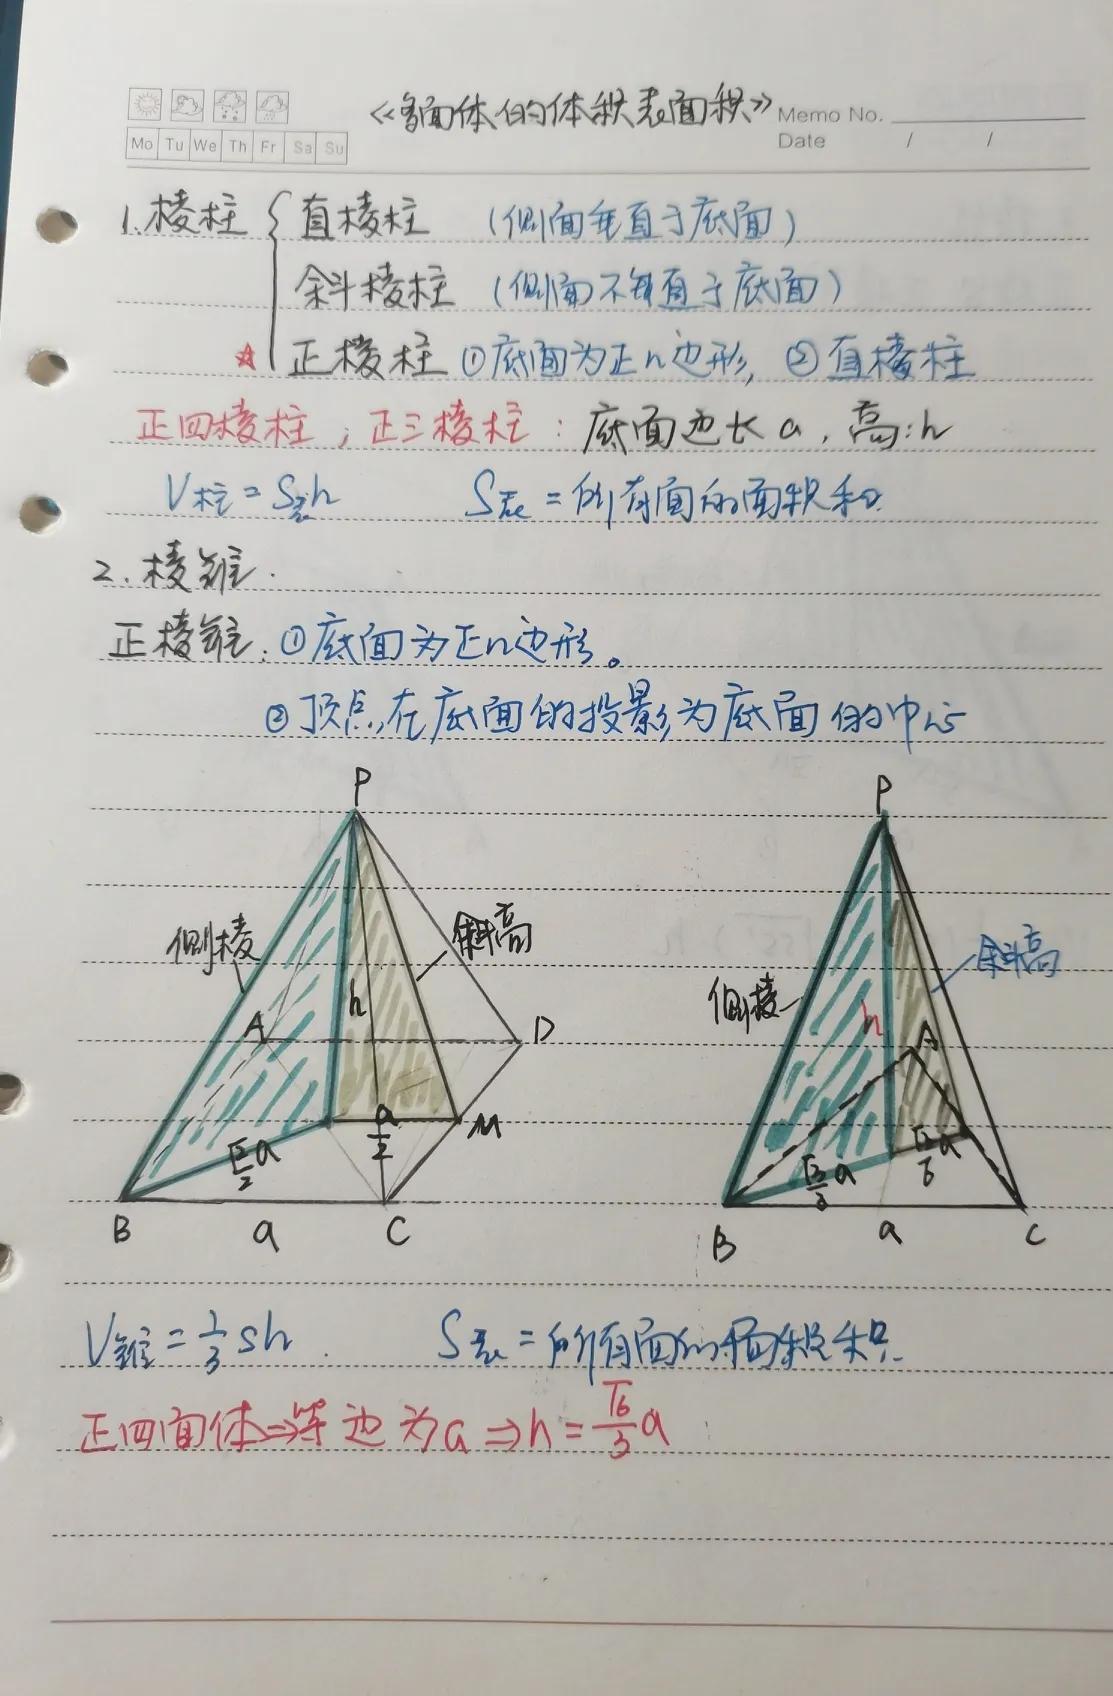 《多面体的体积表面积》 Memo No.
Mo Tu We Th Fr Sa Su Date / /
1.棱柱 { 直棱柱 (侧面垂直于底面)
斜棱柱 (侧面不垂直于底面)
☆ 正棱柱 ①底面为正n边形, ②直棱柱
正四棱柱;正三棱柱: 底面边长a, 高:h
V柱=S底h S表=所有面的面积和.
2.棱锥.
正棱锥: ①底面为正n边形。
②顶点在底面的投影为底面的中心
P P
侧棱 斜高 侧棱 斜高
h h
A D A
√2/2 a a/2 M √3/3 a √3/6 a
B a C B a C
V锥=1/3 sh. S表=所有面的面积和.
正四面体⇒等边为a⇒h=√6/3 a